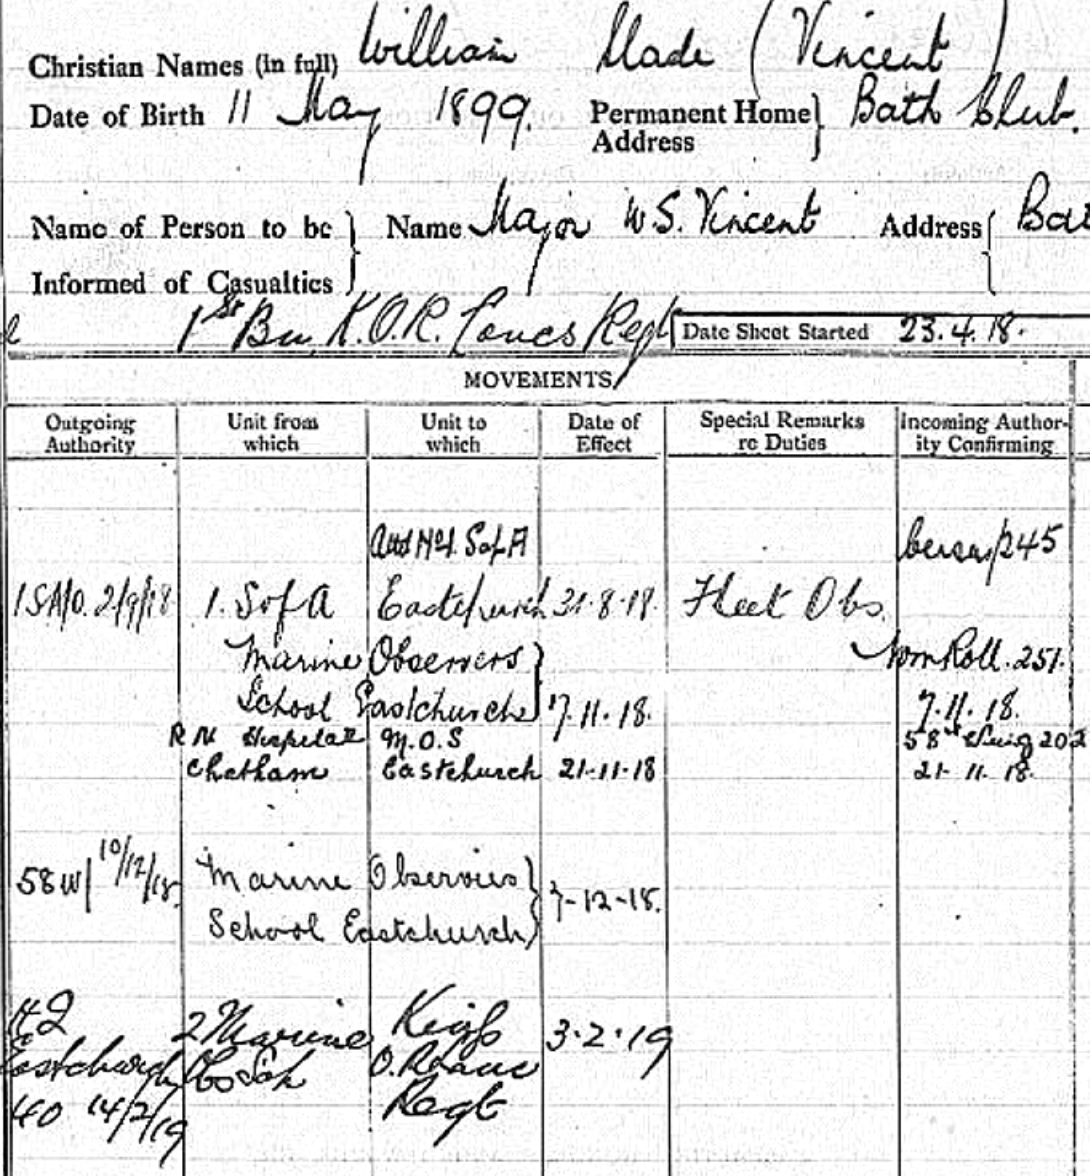 Christian Names (in full) William Slade (Vincent)
Date of Birth 11 May 1899. Permanent Home Address } Bath Club.
Name of Person to be Informed of Casualties } Name Major W S. Vincent Address {
1st Bn K.O.R. Lancs Regt Date Sheet Started 23.4.18.
MOVEMENTS
Outgoing Authority Unit from which Unit to which Date of Effect Special Remarks re Duties Incoming Authority Confirming
Attd No1. S of A 245
2/9/18 1. S of A Eastchurch 31.8.18. Fleet Obs.
Marine Observers } Nom Roll. 251.
School Eastchurch } 7.11.18. 7.11.18.
R N Hospital M.O.S 58th Wing 202
Chatham Eastchurch 21-11-18 21-11-18.
58W/10/12/18. Marine Observers }
School Eastchurch } 7-12-18.
HQ 2 Marine Kings 3.2.19
Eastchurch Obs Sch O. R Lanc
40 14/2/19 Regt